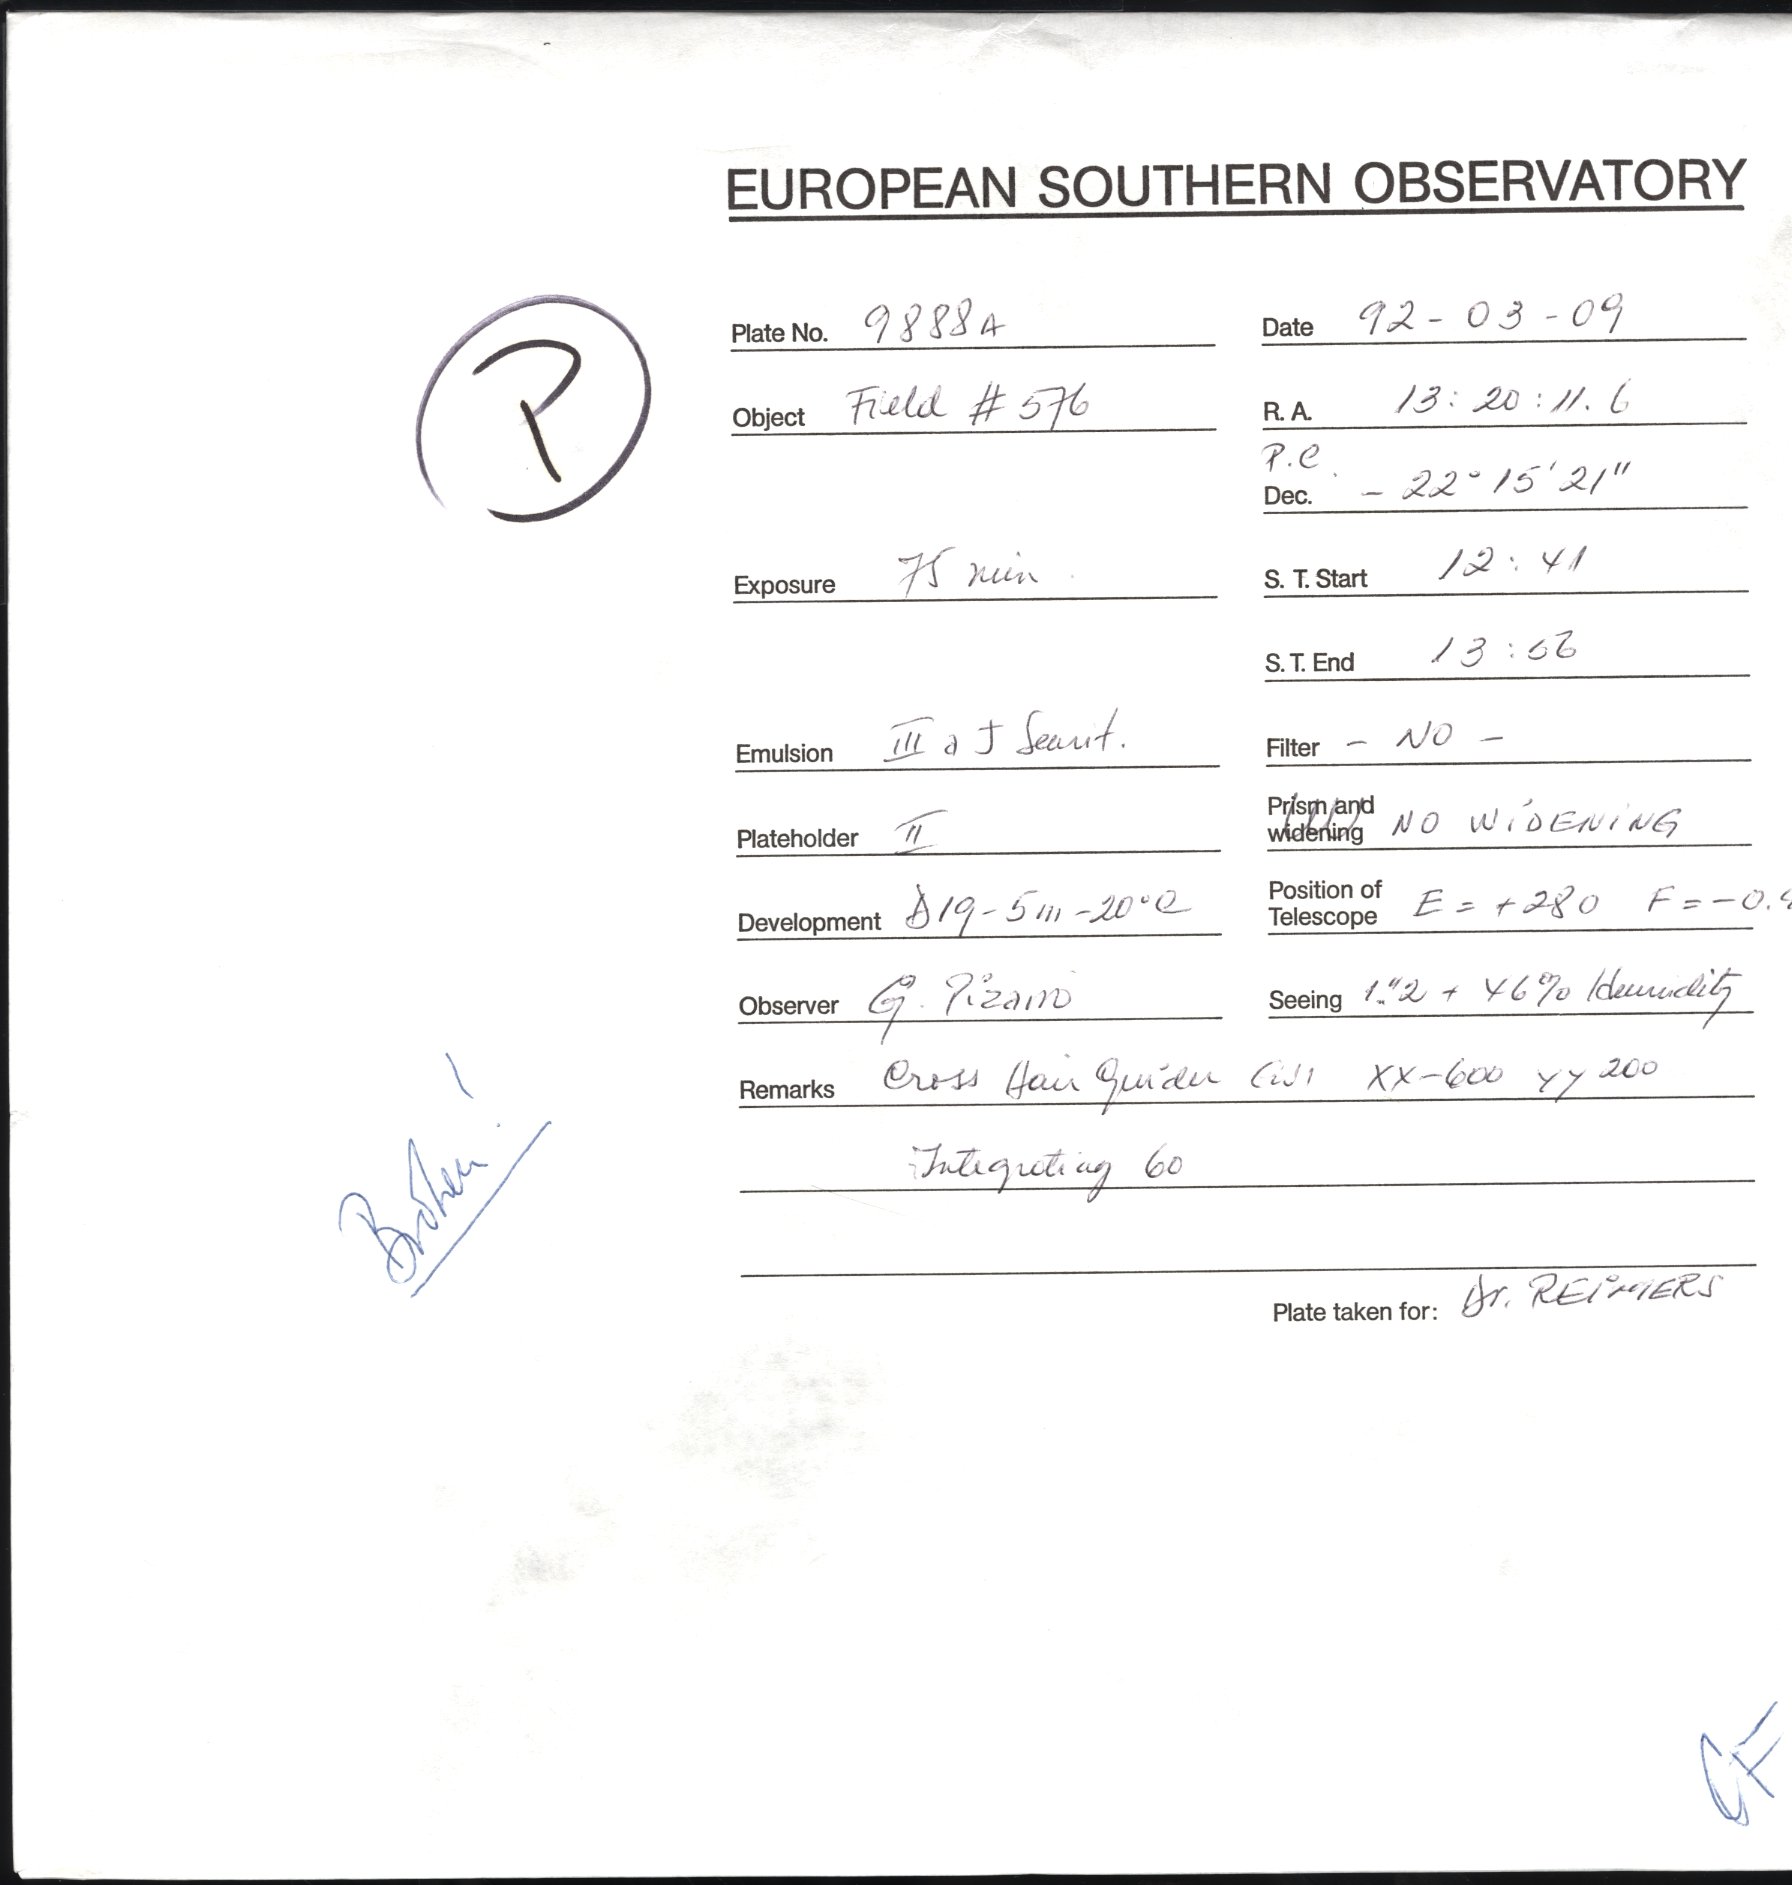 EUROPEAN SOUTHERN OBSERVATORY
P
Plate No. 9888A Date 92-03-09
Object Field # 576 R. A. 13:20:11.6
P.C.
Dec. - 22° 15' 21"
Exposure 75 min. S. T. Start 12:41
S. T. End 13:56
Emulsion III a J Filter - NO -
Plateholder II Prism and widening NO WIDENING
Development D19-5m-20°C Position of Telescope E = +280 F = -0.
Observer G. Pizarro Seeing 1."2 + 46% Humidity
Remarks Cross Hair Guider XX-600 YY 200
Integrating 60
Broken!
Plate taken for: Dr. REIMERS
CF